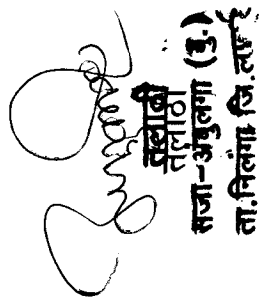 तलाठी
तलाठी
सजा-अंबुलगा (बु.)
ता.निलंगा जि.लातूर